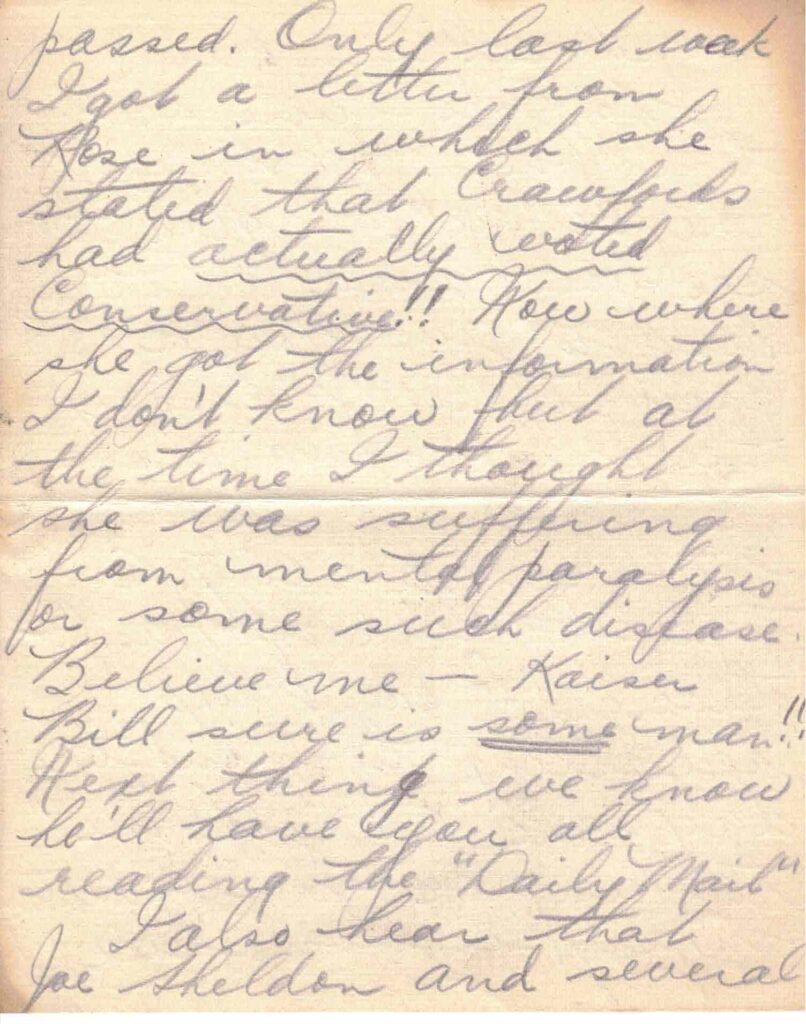 passed. Only last week
I got a letter from
Rose in which she
stated that Crawfords
had actually voted
Conservative!! Now where
she got the information
I don't know but at
the time I thought
she was suffering
from mental paralysis
or some such disease.
Believe me — Kaiser
Bill sure is some man!!
Next thing we know
he'll have you all
reading the "Daily Mail"
I also hear that
Joe Sheldon and several